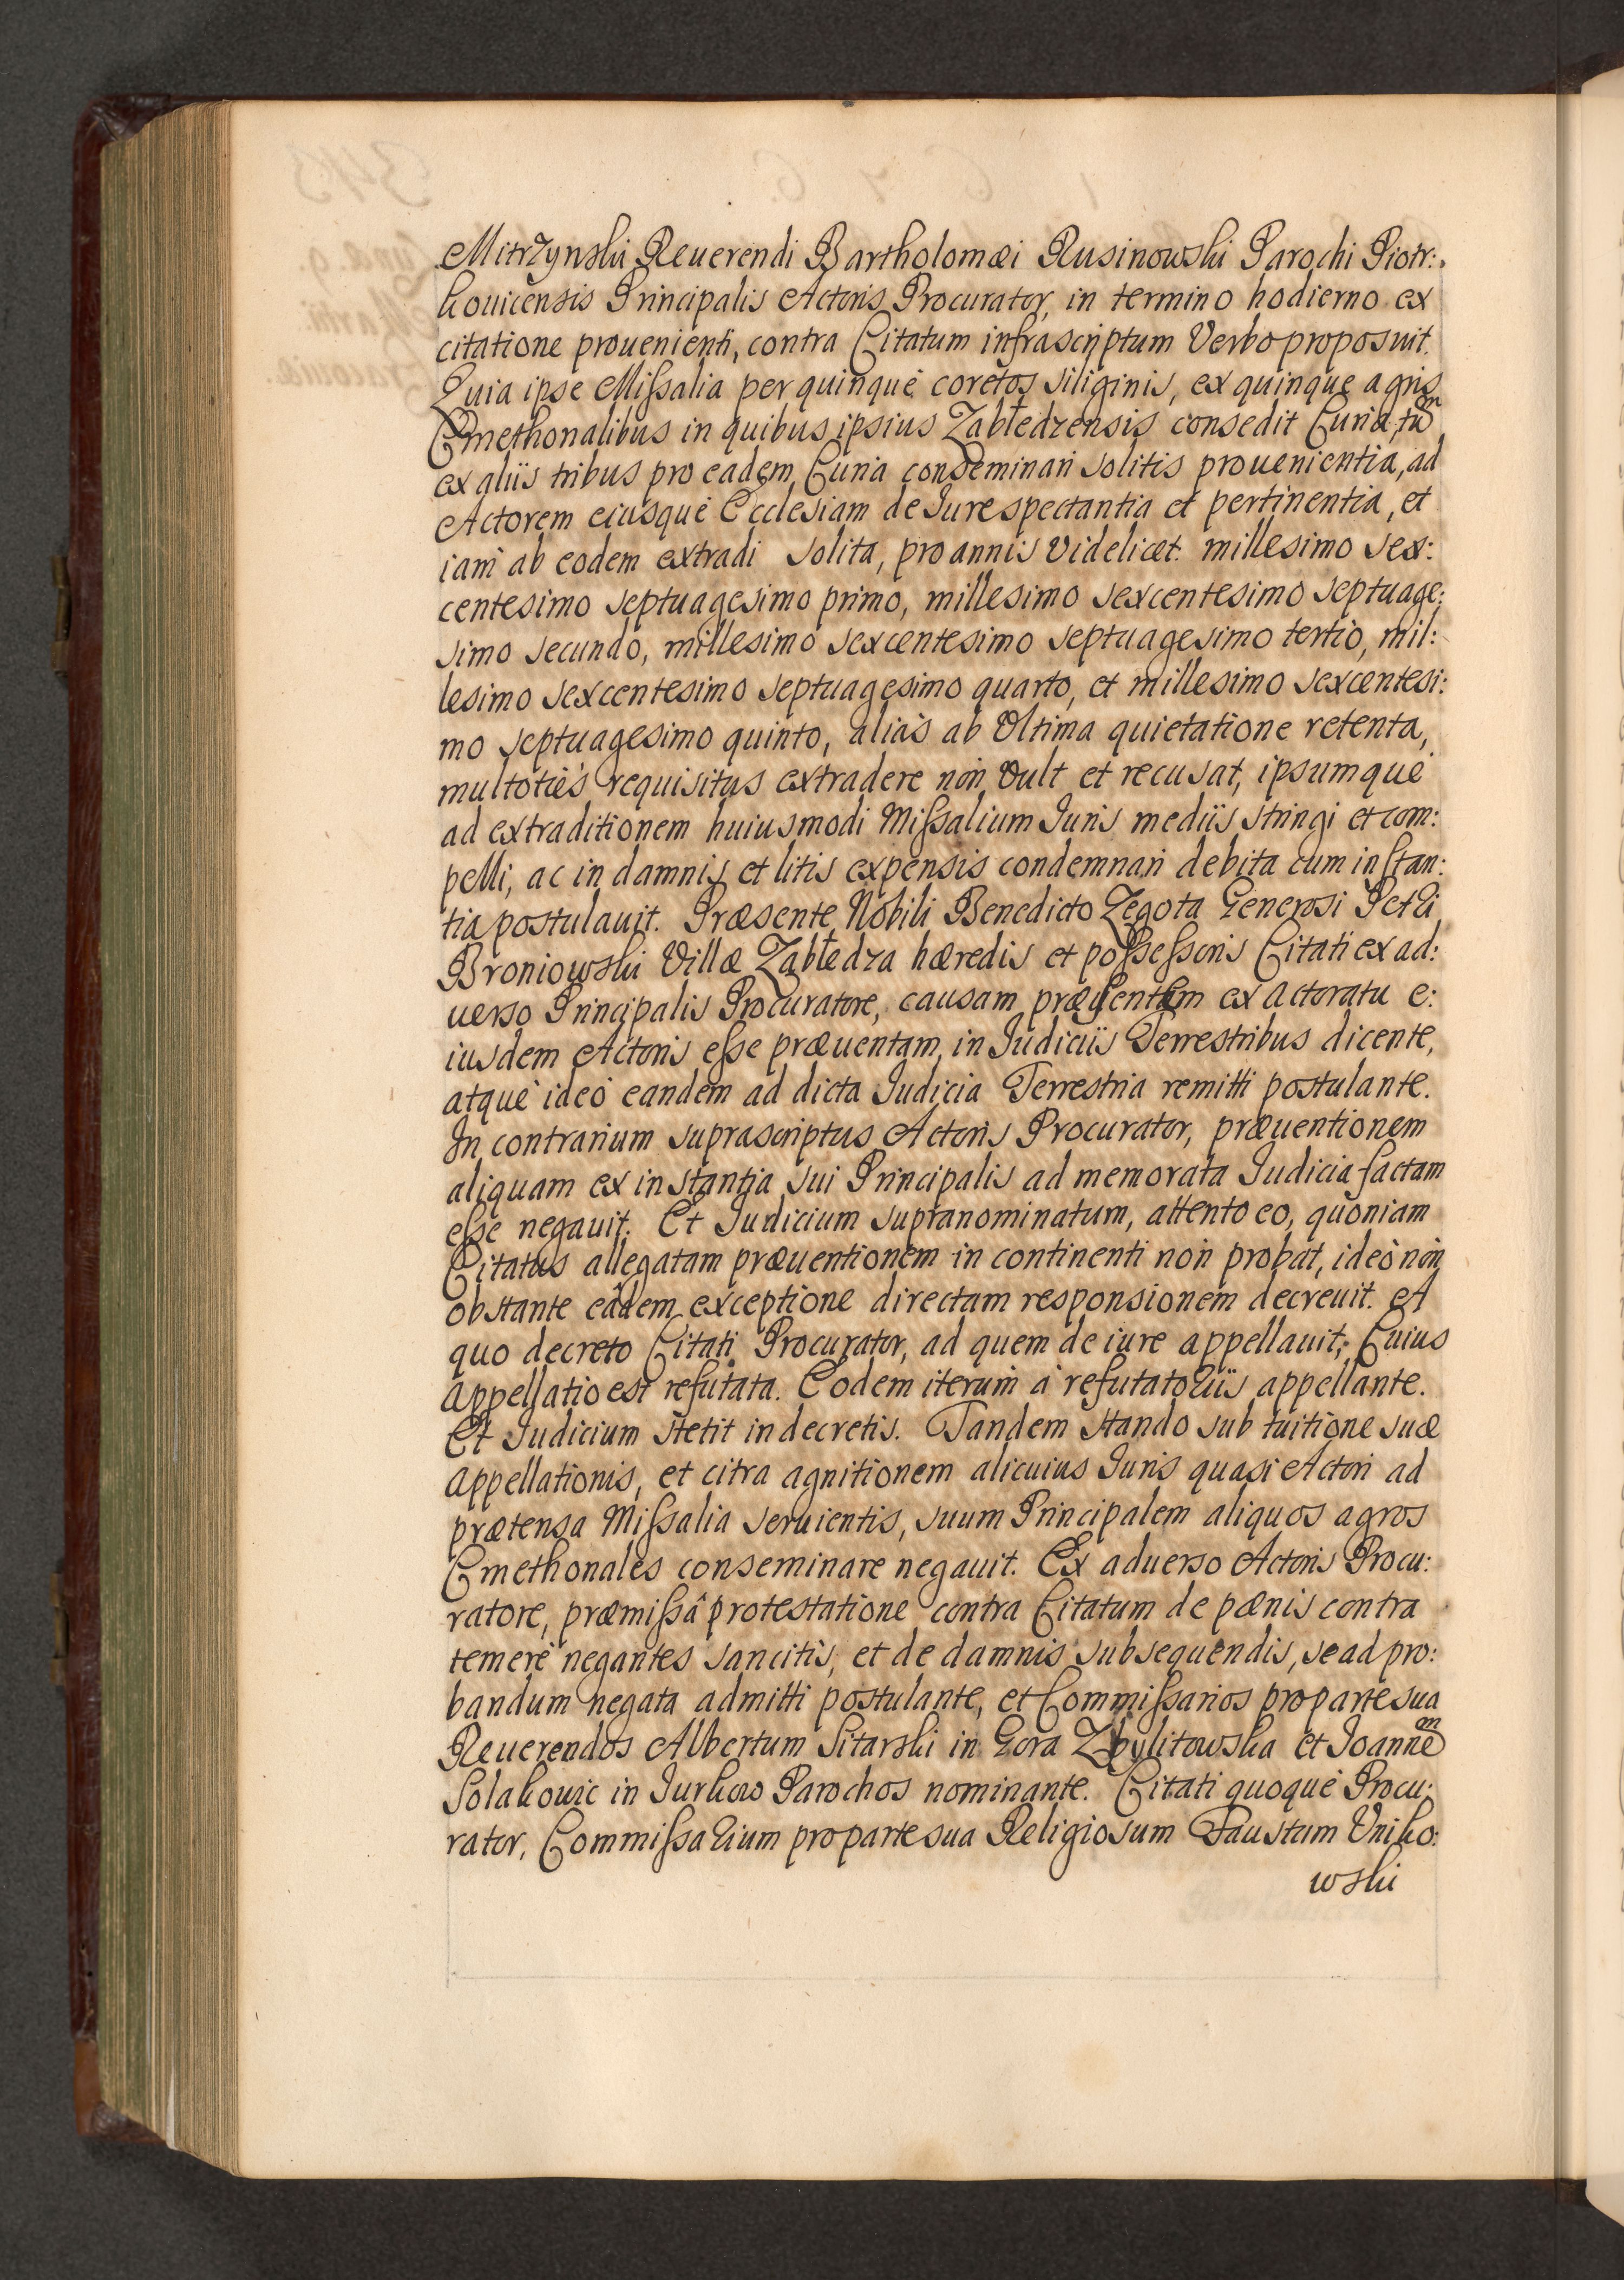 Mitrzynski Reuerendi Bartholomæi Rusinowski Parochi Piotr:
kouicensis Principalis Actoris Procurator, in termino hodierno ex
citatione prouenienti, contra Citatum infrascriptum Verbo proposuit.
Quia ipse Missalia per quinque coretos siliginis, ex quinque agris
Cmethonalibus in quibus ipsius Zabłedzensis consedit Curia, tũm
ex aliis tribus pro eadem Curia conseminari solitis prouenientia, ad
Actorem eiusque Ecclesiam de Iure spectantia et pertinentia, et
iam ab eodem extradi solita, pro annis videlicet millesimo sex:
centesimo septuagesimo primo, millesimo sexcentesimo septuage:
simo secundo, millesimo sexcentesimo septuagesimo tertio, mil:
lesimo sexcentesimo septuagesimo quarto, et millesimo sexcentesi:
mo septuagesimo quinto, aliàs ab Vltima quietatione retenta,
multoties requisitus extradere non Vult et recusat, ipsumque
ad extraditionem huiusmodi Missalium Iuris mediis stringi et com:
pelli, ac in damnis et litis expensis condemnari debita cum instan:
tia postulauit. Præsente Nobili Benedicto Zegota Generosi Petri
Broniowski Villæ Zabłedza hæredis et possessoris Citati ex ad:
uerso Principalis Procuratore, causam præsentem ex actoratu e:
iusdem Actoris esse præuentam in Iudiciis Terrestribus dicente,
atque ideo eandem ad dicta Iudicia Terrestria remitti postulante.
In contrarium suprascriptus Actoris Procurator, præuentionem
aliquam ex instantia sui Principalis ad memorata Iudicia factam
esse negauit. Et Iudicium supranominatum, attento eo, quoniam
Citatus allegatam præuentionem in continenti non probat, ideò non
obstante eâdem exceptione directam responsionem decreuit. A
quo decreto Citati Procurator, ad quem de iure appellauit; Cuius
Appellatio est refutata. Eodem iterum à refutatoriis appellante.
Et Iudicium stetit in decretis. Tandem stando sub tuitione suæ
Appellationis, et citra agnitionem alicuius Iuris quasi Actori ad
prætensa Missalia seruientis, suum Principalem aliquos agros
Cmethonales conseminare negauit. Ex aduerso Actoris Procu:
ratore, præmissâ protestatione contra Citatum de pænis contra
temerè negantes sancitis, et de damnis subsequendis, se ad pro:
bandum negata admitti postulante, et Commissarios pro parte sua
Reuerendos Albertum Sitarski in Gora Zbylitowska et Ioannẽm
Solakouic in Iurkow Parochos nominante. Citati quoque Procu:
rator, Commissarium pro parte sua Religiosum Faustum Vniko:
wski